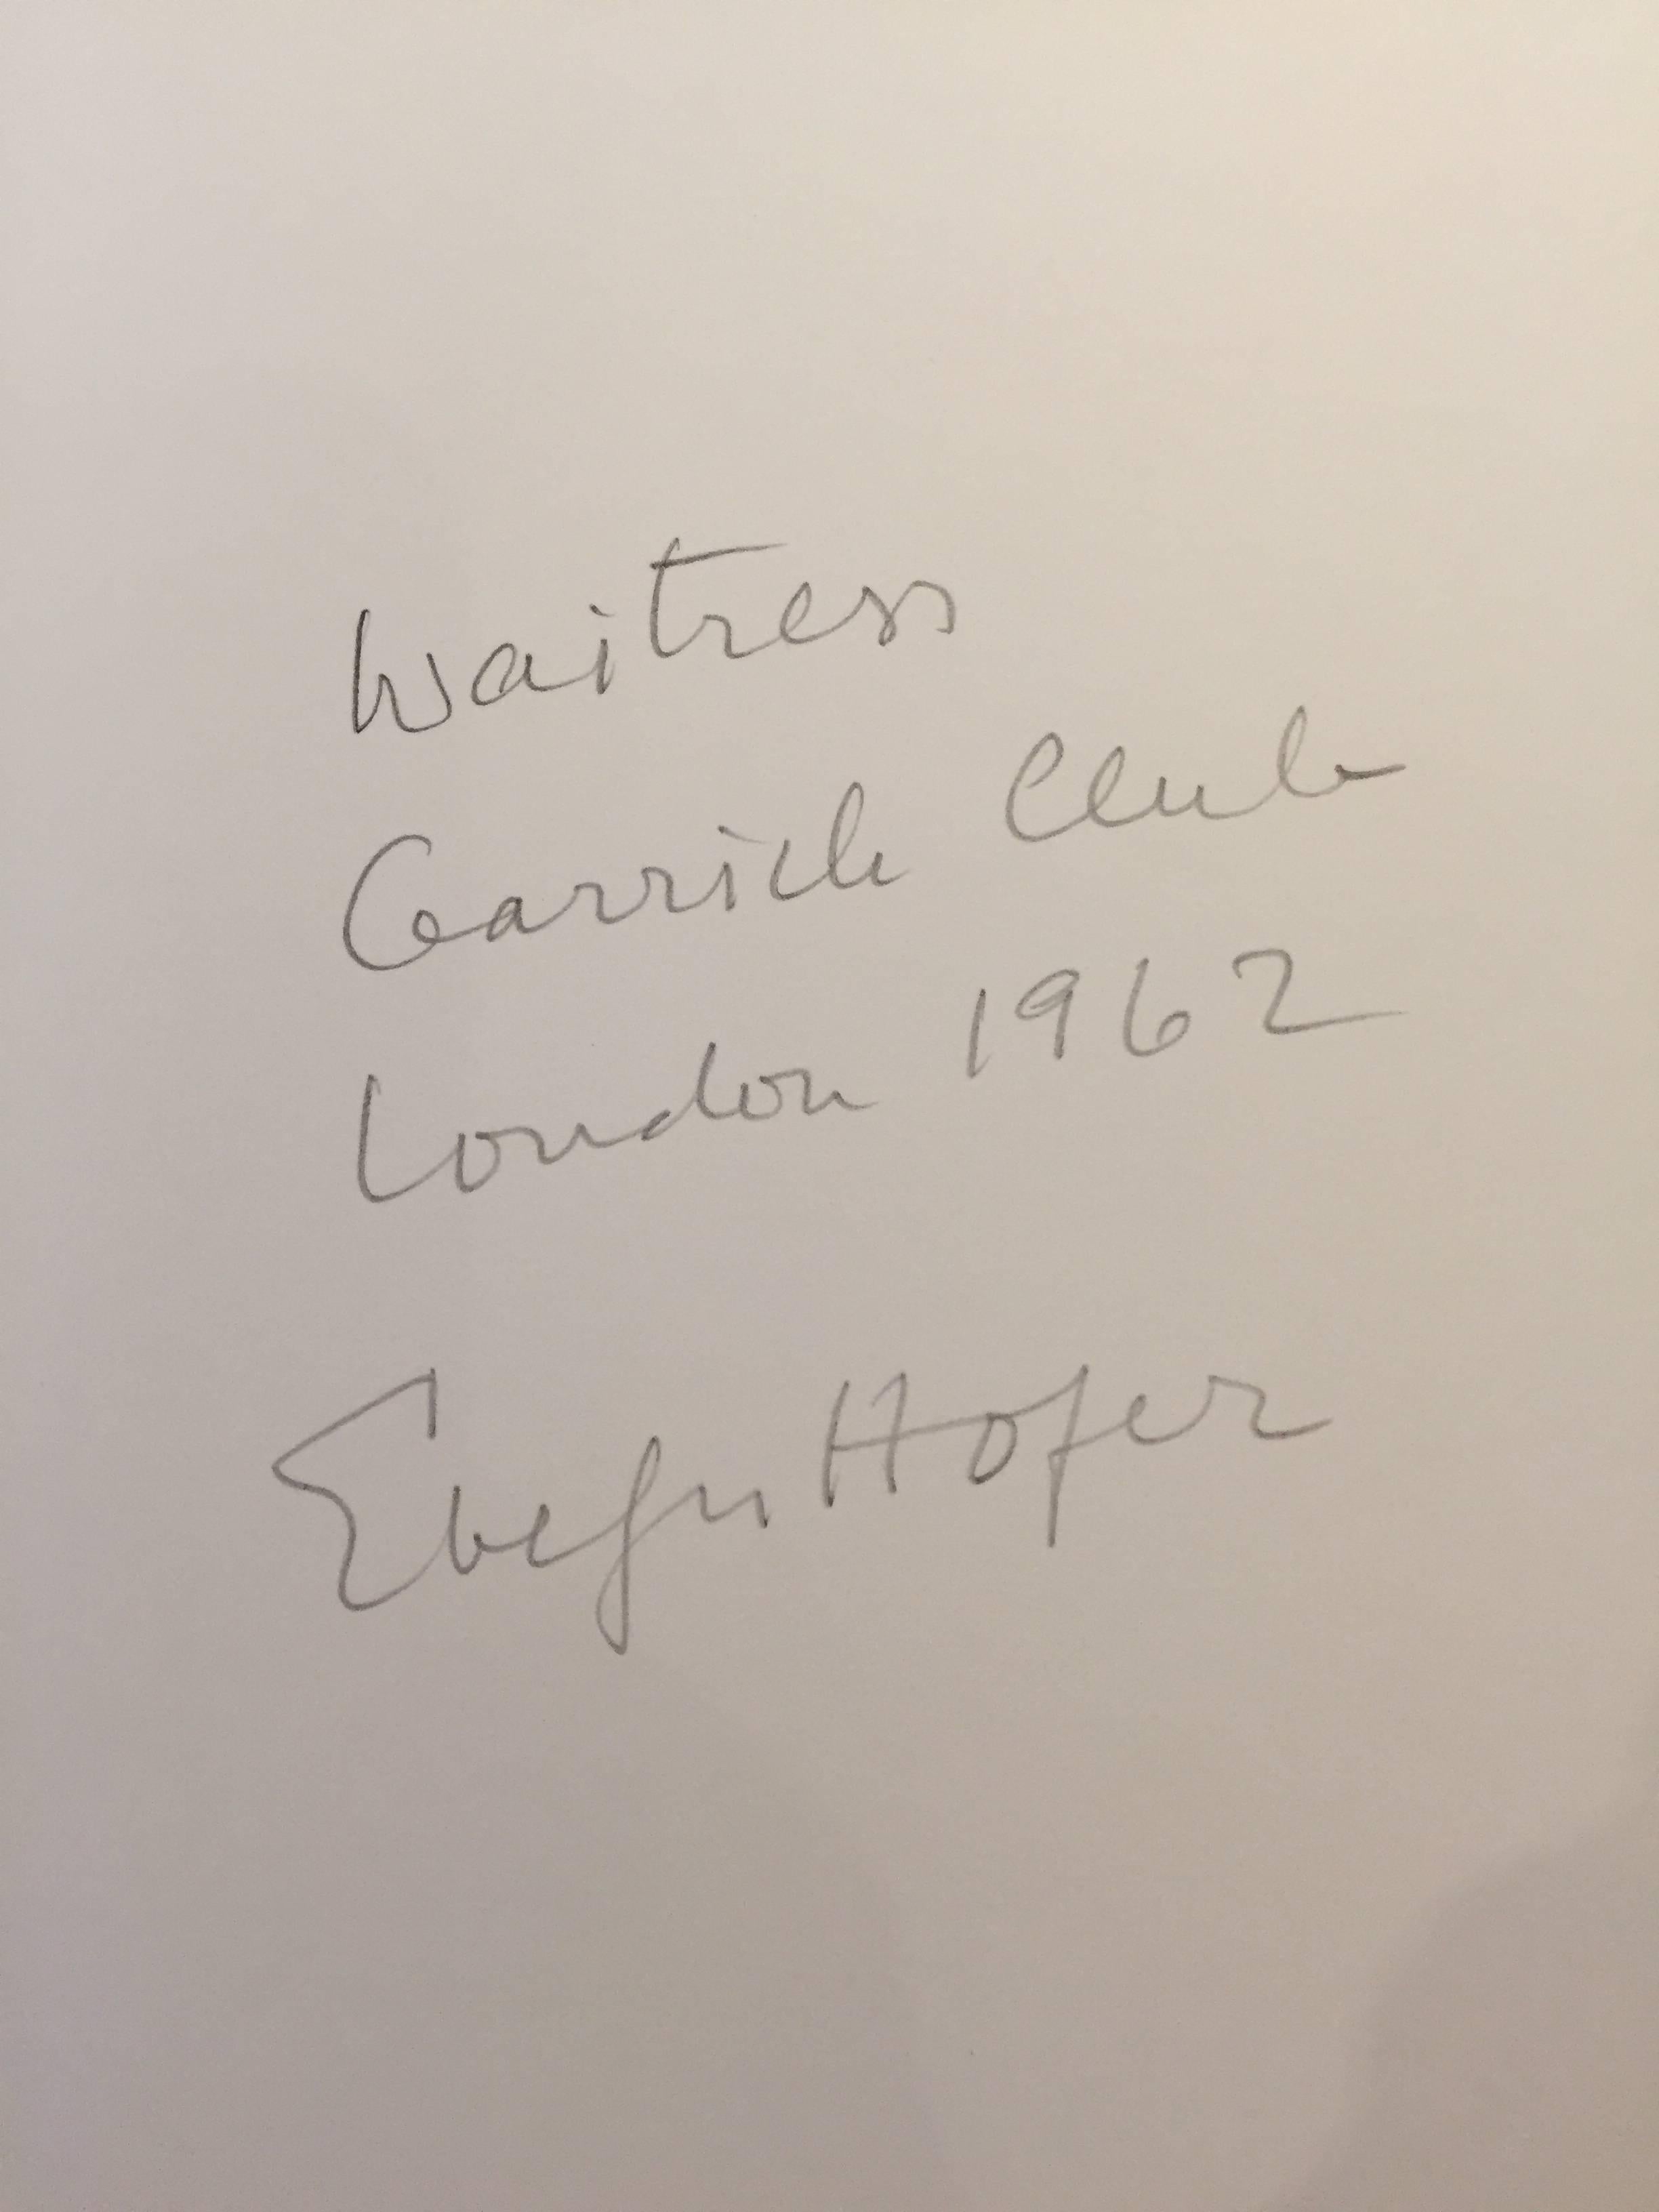 Waitress
Garrick Club
London 1962
Evelyn Hofer